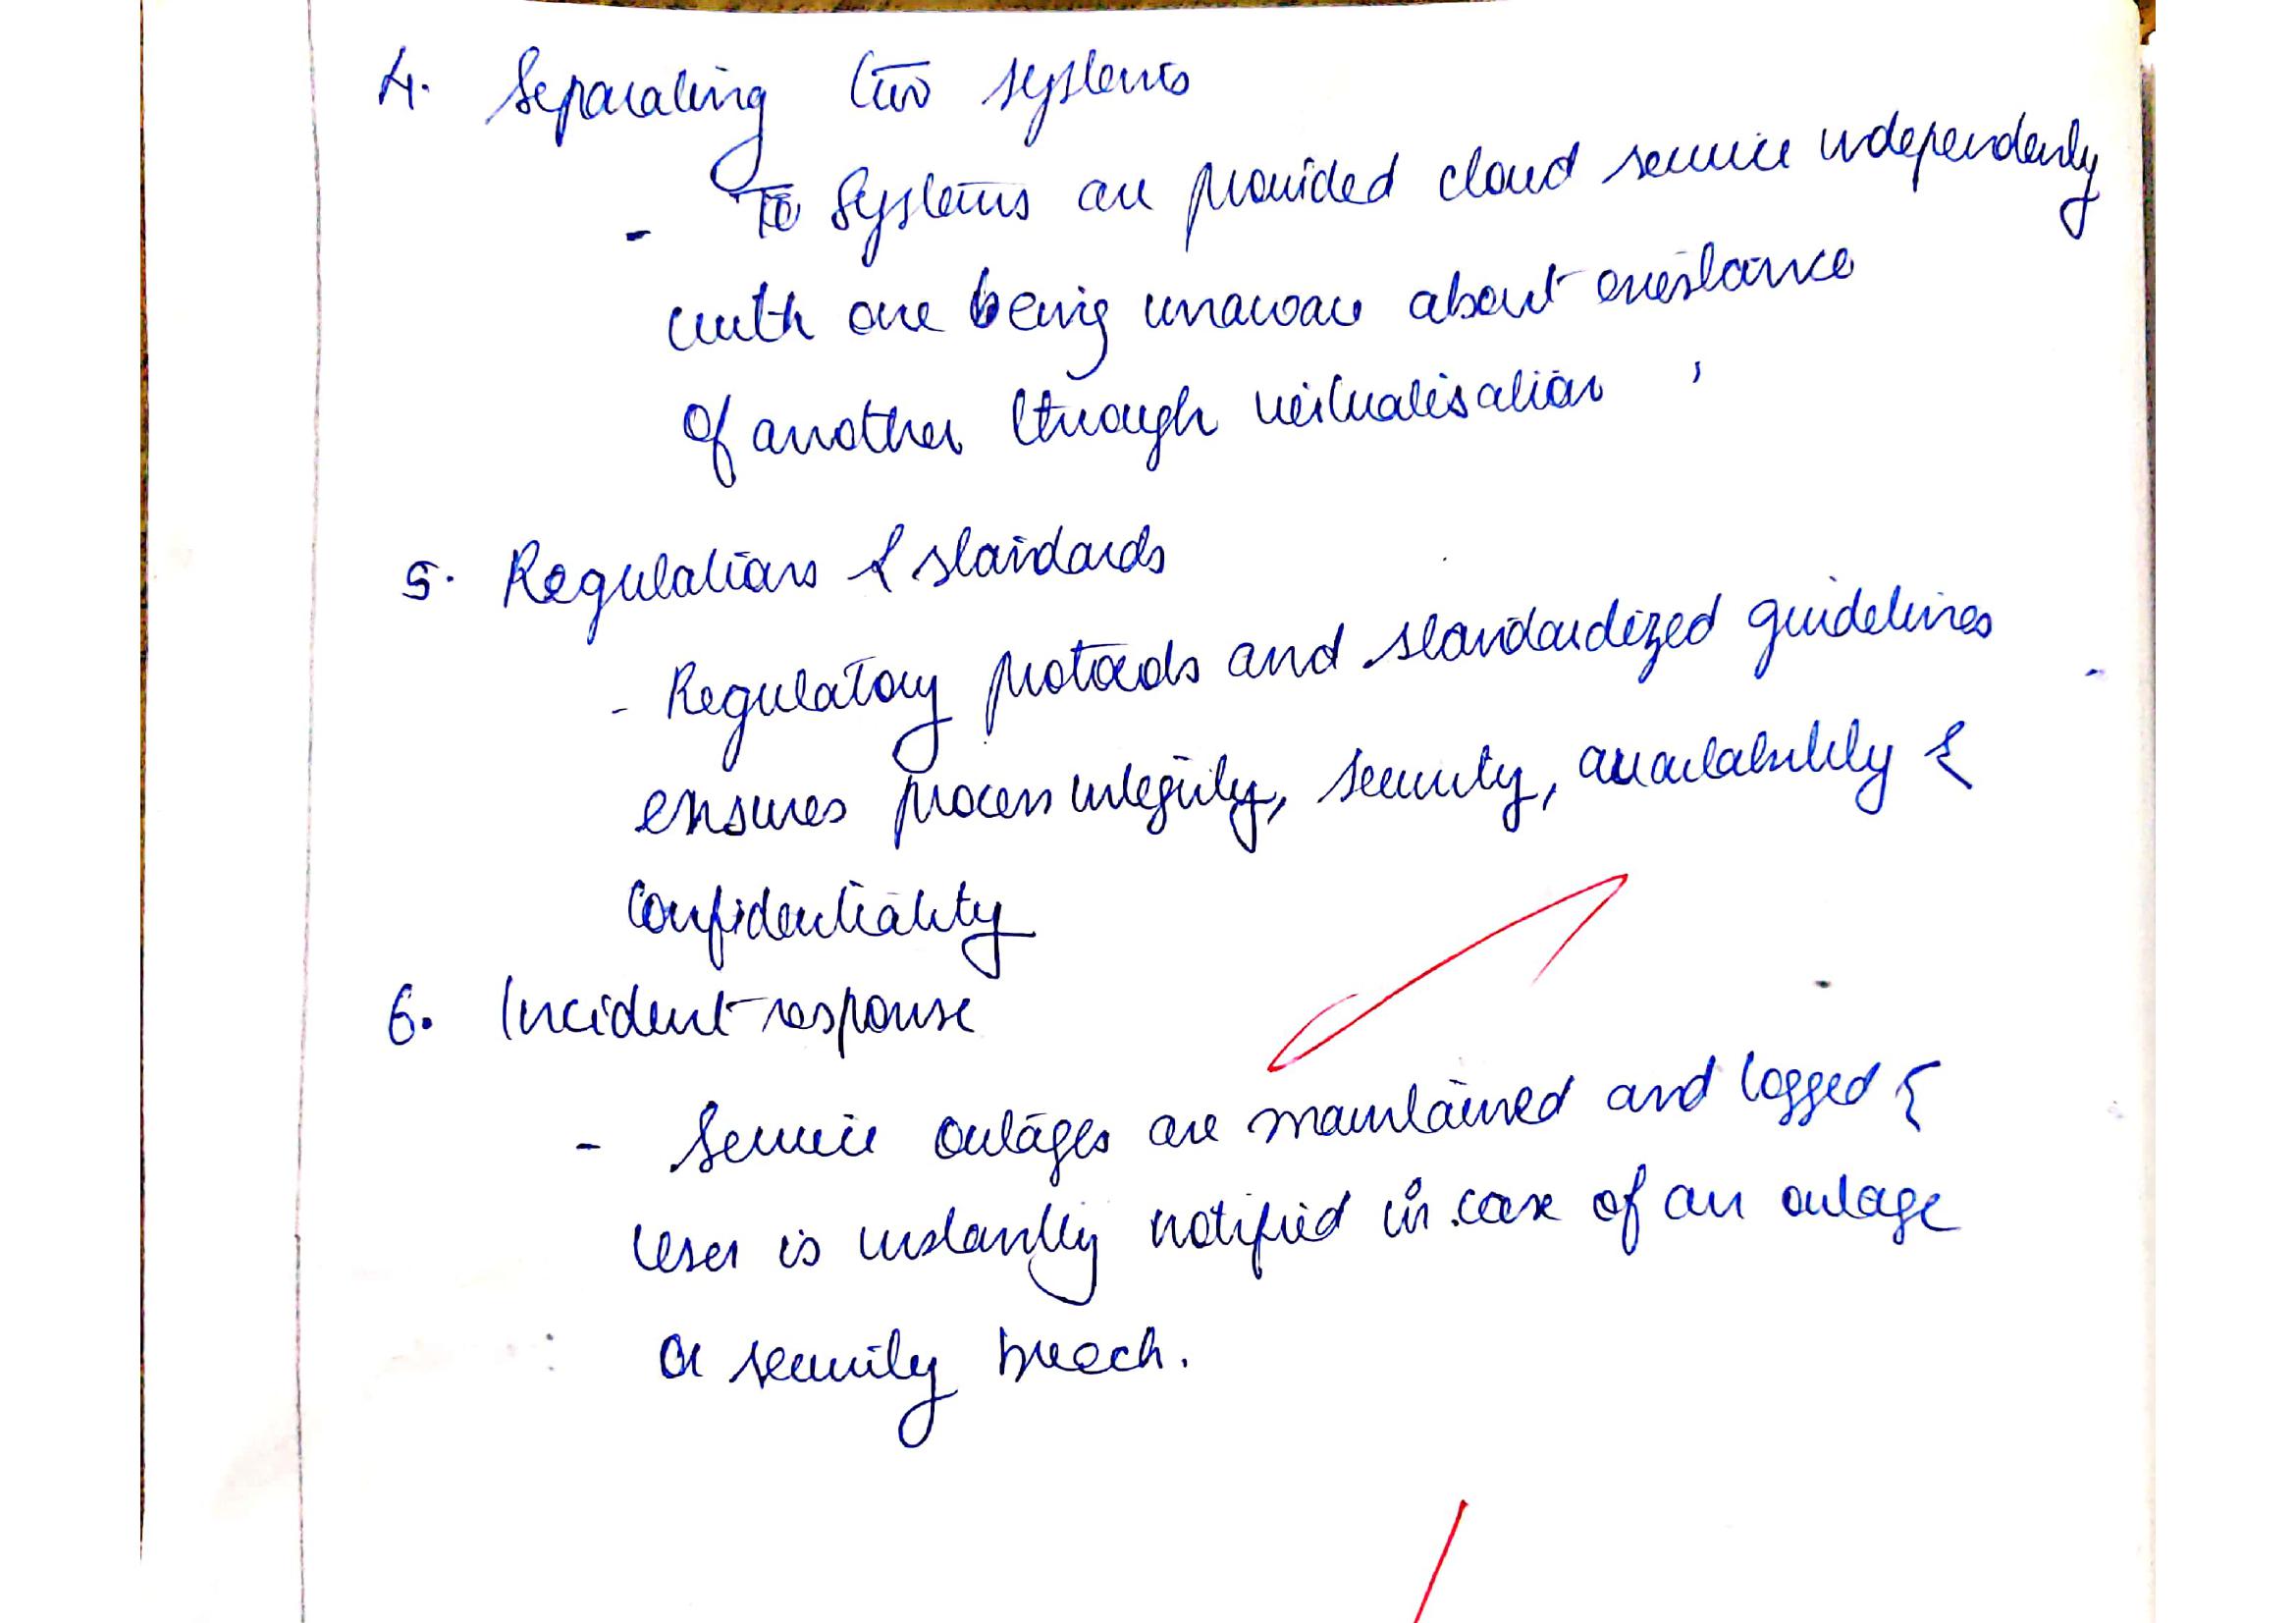 4. Separating two systems
- To Systems are provided cloud service independenly
with one being unaware about existance
of another through virtualisation
5. Regulations & standards
- Regulatory protocols and standardized guidelines
ensures process integrity, security, availability &
confidentiality
6. Incident response
- Service outages are maintained and logged &
User is instantly notified in case of an outage
or security breach.